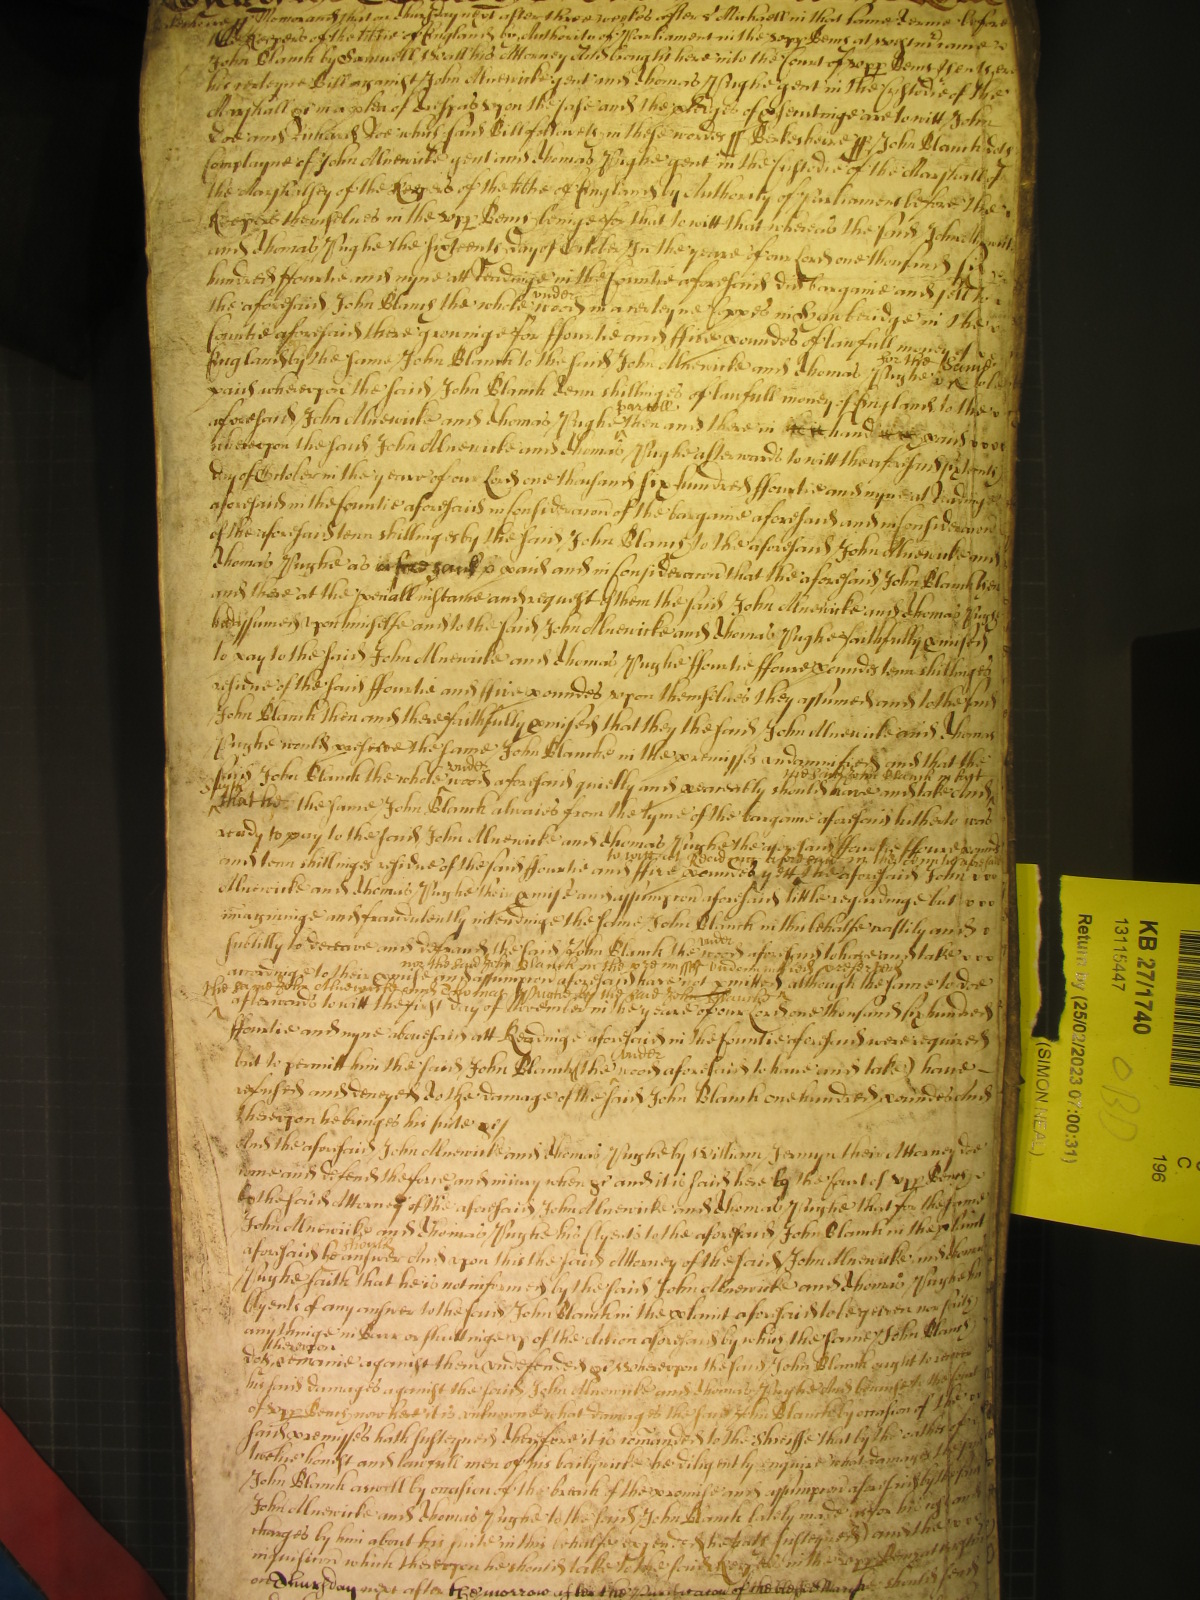 Memorand that on Thursday next after three weekes after St Michaell in that same Terme before
the Keepers of the libtie of England by Authority of Parliament in the upp Bench at Westmr came
John Blanch by Samuell his Attorney And brought here into the Court of upp Bench then there
his certeyne Bill against John Alnewicke gent and Thomas Pughe gent in the Custodie of the
Marshall &c in a plea of Trespas upon the Case and the pledges of psecutinge are to witt John
Doe and Richard Roe which said Bill followeth in these words ss Berkesheire ss John Blanch doth
Complayne of John Alnewicke gent and Thomas Pughe gent in the Custodie of the Marshall of
the Marshalsey of the Keepers of the libtie of England by Authority of Parliament before the
Keepers themselves in the upp Bench beinge for that to witt that whereas the said John Alnewicke
and Thomas Pughe the sixteenth day of October In the yeare of our Lord one thousand six
hundred ffourtie and nyne att Readinge in the Countie aforesaid did bargaine and sell to
the aforesaid John Blanch the whole under wood in a certeyne Coppes in in the
Countie aforesaid there groweinge for ffourtie and ffive poundes of lawfull money of
England by the same John Blanch to the said John Alnewicke and Thomas Pughe for the same to be
paid whereupon the said John Blanch tenn shillinges of lawfull money of England to the
aforesaid John Alnewicke and Thomas Pughe parcell then and there in hand paid
whereupon the said John Alnewicke and Thomas Pughe afterwards to witt the aforesaid sixteenth
day of October in the yeare of our Lord one thousand six hundred ffourtie and nyne at Readinge
aforesaid in the Countie aforesaid in consideracon of the bargaine aforesaid and in consideracon
of the aforesaid tenn shillinges by the said John Blanch to the aforesaid John Alnewicke and
Thomas Pughe as aforesaid paid and in Consideracon that the aforesaid John Blanch then
and there at the speciall instance and request of them the said John Alnewicke and Thomas Pughe
had assumed upon himselfe and to the said John Alnewicke and Thomas Pughe faithfully pmised
to pay to the said John Alnewicke and Thomas Pughe ffourtie ffoure poundes tenn shillinges
residue of the said ffourtie and ffive poundes upon themselves they assumed and to the said
John Blanch then and there faithfully pmised that they the said John Alnewicke and Thomas
Pughe would preserve the same John Blanche in the premisses undamnified and that the
said John Blanch the whole under wood aforesaid quietly and peaceably should have and take And
that he the same John Blanch alwaies from the tyme of the bargaine aforesaid hitherto was
ready to pay to the said John Alnewicke and Thomas Pughe the aforesaid ffourtie ffoure pounds
and tenn shillinges residue of the said ffourtie and ffive poundes yett the aforesaid John
Alnewicke and Thomas Pughe their pmise and assumpcon aforesaid little regardinge but
imagininge and fraudulently intendinge the same John Blanch in this behalfe craftily and
subtilly to deceave and defraud the said John Blanch the under wood aforesaid to have and take
accordinge to their pmise and assumpcon aforesaid have not pmitted although the same to doe
the said John Alnewicke and Thomas Pughe by the said John Blanch
afterwards to witt the first day of November in the yeare of our Lord one thousand six hundred
ffourtie and nyne abovesaid att Readinge aforesaid in the Countie aforesaid were required
but to permitt him the said John Blanch (the under wood aforesaid to have and take) have
refused and denyed To the damage of the said John Blanch one hundred poundes And
thereupon he bringes his suite &c
And the aforesaid John Alnewicke and Thomas Pughe by William Jennyn their Attorney doe
come and defend the force and iniury when &c and it is said here by the Court of upp Bench
to the said Attorney of the aforesaid John Alnewicke and Thomas Pughe that for the same
John Alnewicke and Thomas Pughe his Clyents to the aforesaid John Blanch in the plaint
aforesaid he should answer And upon this the said Attorney of the said John Alnewicke and Thomas
Pughe saith that he is not informed by the said John Alnewicke and Thomas Pughe his
Clyents of any answer to the said John Blanch in the plaint aforesaid to be given nor saith
anythinge in Barr or of the accion aforesaid by which the same John Blanch
thereupon doth remaine against them undefended &c Whereupon the said John Blanch ought to recover
his said damages against the said John Alnewicke and Thomas Pughe And because to the Court
of upp Bench now here it is unknowne what damages the said John Blanch by occasion of the
said premisses hath susteyned Therefore it is comanded to the Sheriffe that by the oathes of
twelve honest and lawfull men of his bailywicke he diligently enquire what damages the said
John Blanch aswell by occasion of the breach of the promise and assumpcon aforesaid by the said
John Alnewicke and Thomas Pughe to the said John Blanch lately made as for his costs and
charges by him about his suite in this behalfe expended hath susteyned and the
inquisicon which thereupon he should take to the said Keepers in the upp Bench at Westmr
on Thursday next after the morrow after the Purificacon of the blessed Marie should send
KB 27/1740
13115447
Return by (25/02/2023 07:00:31)
(SIMON NEAL)
OBD
C
196